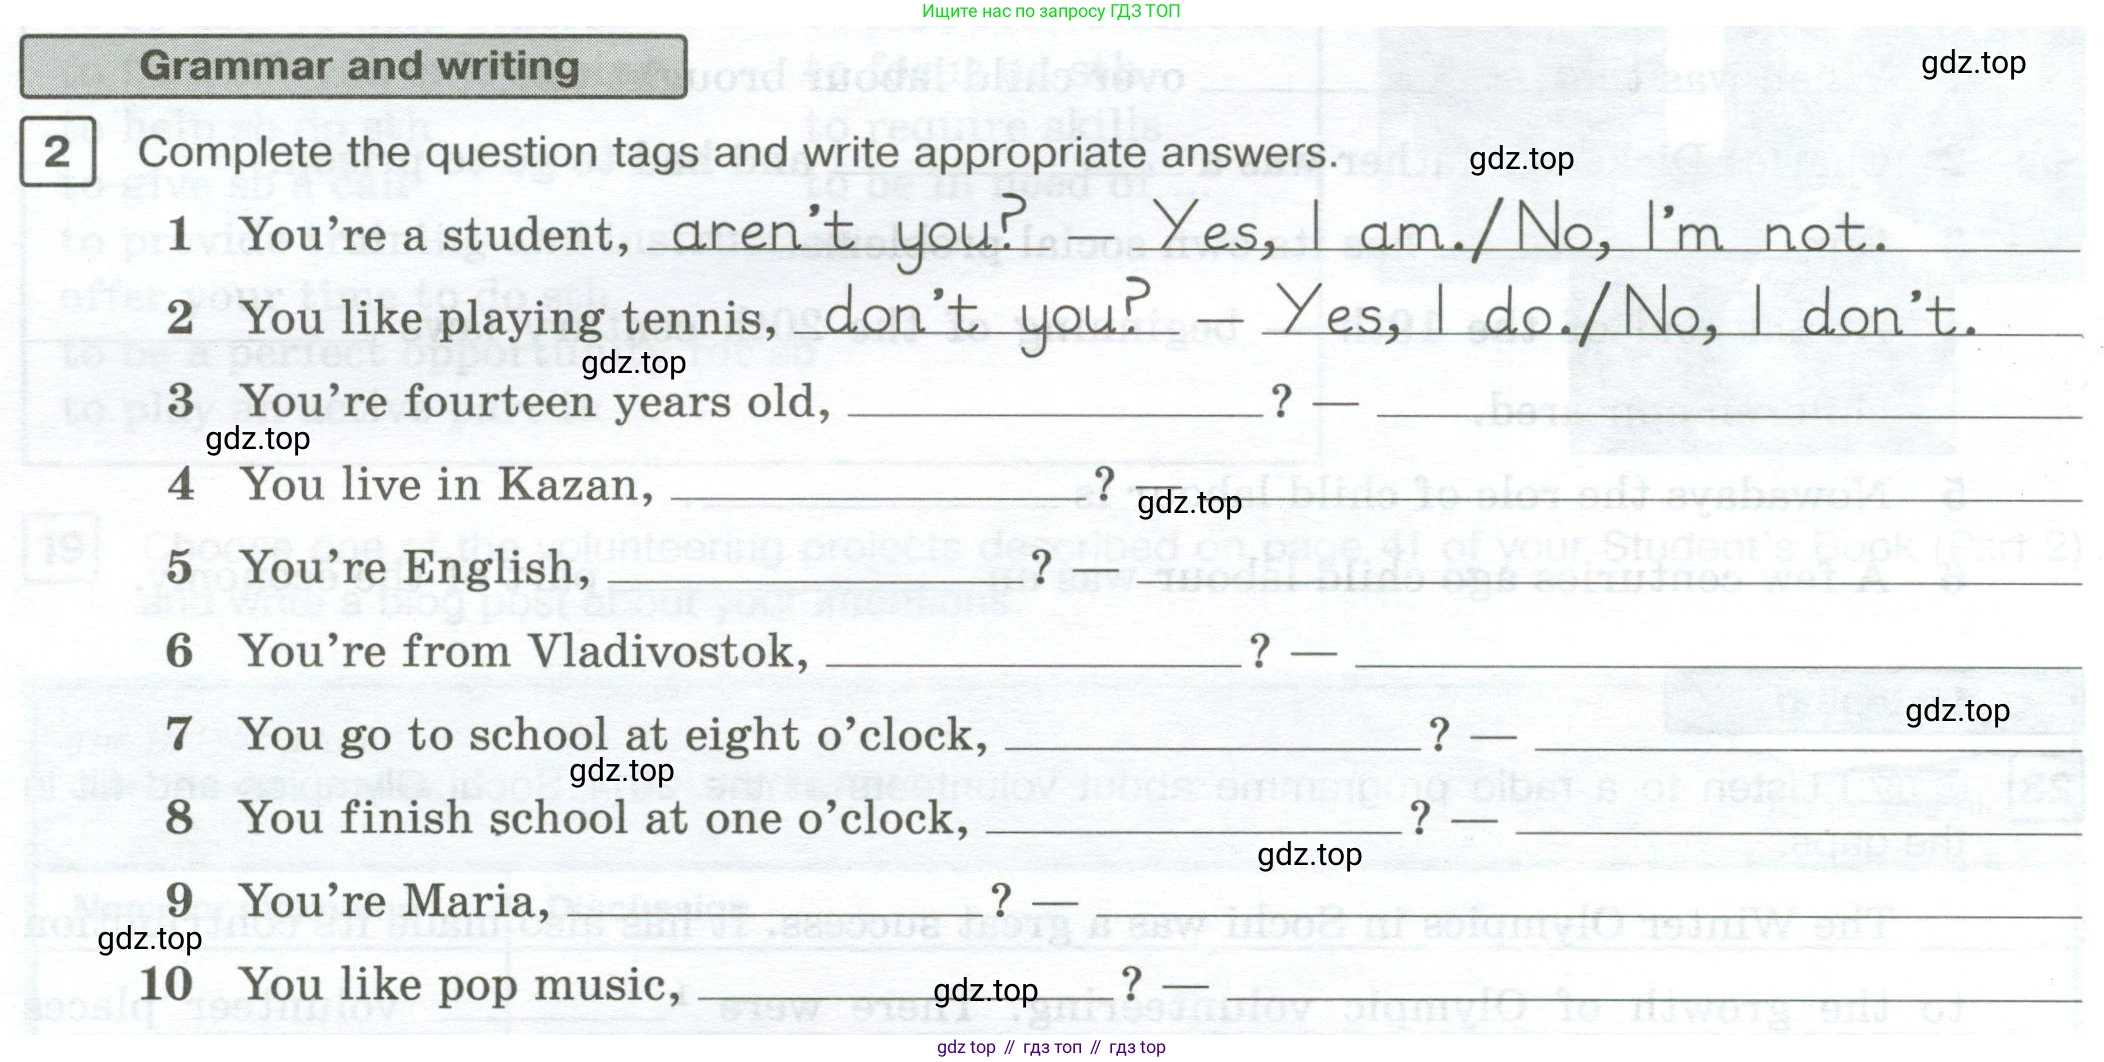 Ищите нас по запросу ГДЗ ТОП
Grammar and writing
gdz.top
2 Complete the question tags and write appropriate answers.
gdz.top
1 You're a student, aren't you? — Yes, I am./No, I'm not.
2 You like playing tennis, don't you? — Yes, I do./No, I don't.
gdz.top
3 You're fourteen years old, ____ ? — ____
gdz.top
4 You live in Kazan, ____ ? — ____
gdz.top
5 You're English, ____ ? — ____
6 You're from Vladivostok, ____ ? — ____
gdz.top
7 You go to school at eight o'clock, ____ ? — ____
gdz.top
8 You finish school at one o'clock, ____ ? — ____
gdz.top
9 You're Maria, ____ ? — ____
gdz.top
10 You like pop music, ____ ? — ____
gdz.top
gdz top // гдз топ // гдз top